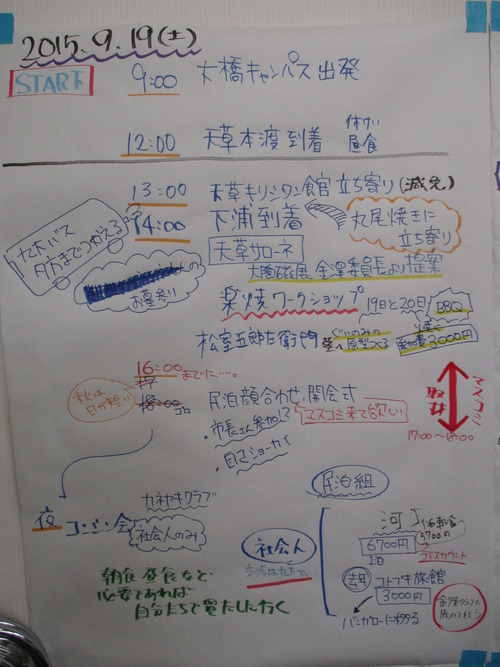 2015.9.19(土)
START
9:00 大橋キャンパス出発
12:00 天草本渡到着 休けい 昼食
13:00 天草キリシタン館立ち寄り(減免)
14:00 下浦到着
丸尾焼きに
立ち寄り
九大バス
夕方までつかえる
お墓参り
天草サローネ
大陶磁展 金澤委員長より提案
楽焼ワークショップ 19日と20日 BBQ
松室五郎左衛門 ぐいのみの
原型つくる
参加費3000円
16:00までに…。
秋は
日が短い
民泊顔合わせ、開会式
マスコミ来て欲しい
・市長さん参加!?
・自己ショーカイ
マスコミ
取材
17:00〜18:00
夜 コンシン会
カネヤキクラブ
社会人のみ
民泊組
社会人
交流は九大で。
6700円
1泊
5700円
ディスカウント
コトブキ旅館
3000円
バンガローに移る
朝食 昼食など
必要であれば
自分たちで買出し行く